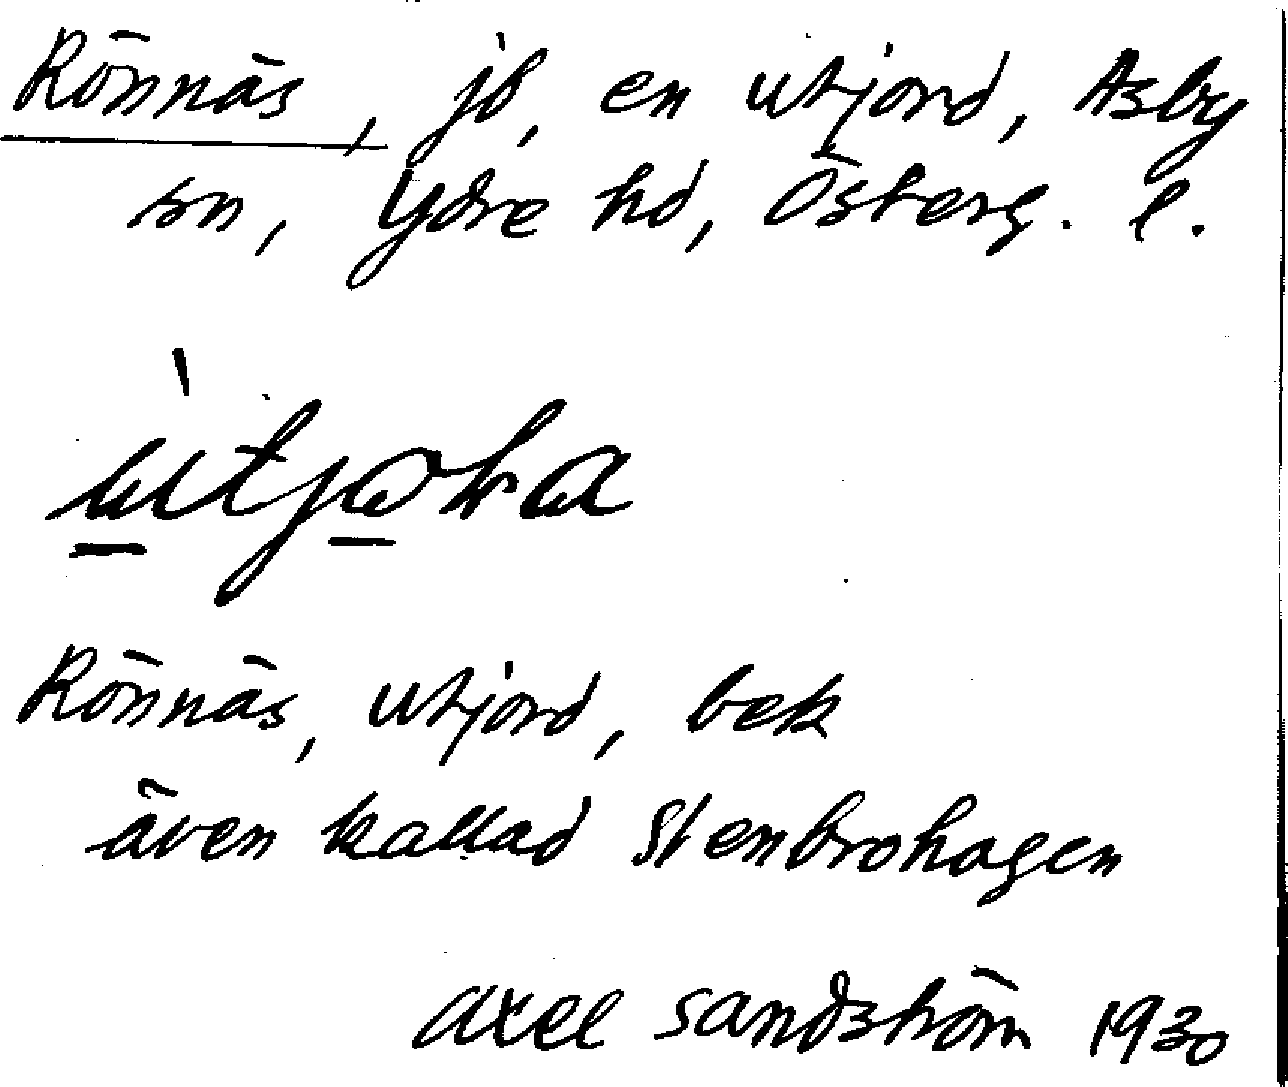 Rönnäs, jb, en utjord, Asby
sn, Ydre hd, Österg. l.
Rönnäs, utjord, bek
även kallad Stenbrohagen
Axel Sandström 1930